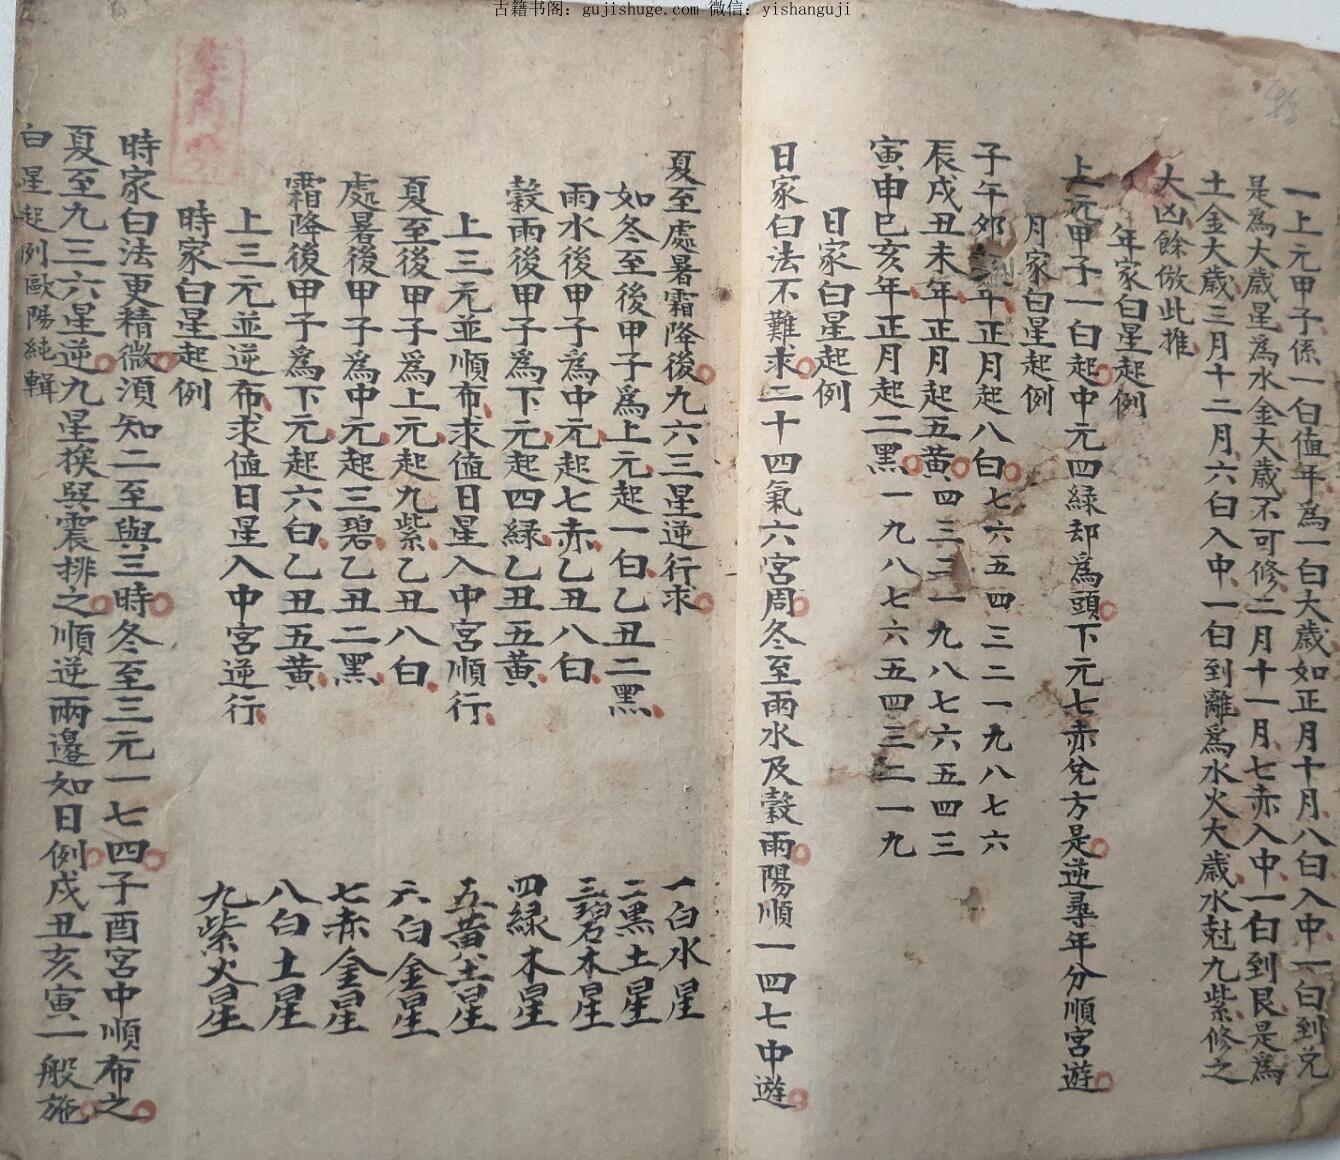 古籍书阁：gujishuge.com 微信：yishanguji
一上元甲子係一白值年為一白大歲如正月十月八白入中一白到兌
是為大歲星為水金大歲不可修二月十一月七赤入中一白到艮是為
土金大歲三月十二月六白入中一白到離為水火大歲水尅九紫修之
大凶餘倣此推
年家白星起例
上元甲子一白起中元四緑却為頭下元七赤兌方是逆尋年分順宮遊
月家白星起例
子午卯年正月起八白七六五四三二一九八七六
辰戌丑未年正月起五黃四三二一九八七六五四三
寅申巳亥年正月起二黑一九八七六五四三二一九
日家白星起例
日家白法不難求二十四氣六宮周冬至雨水及穀雨陽順一四七中遊
夏至處暑霜降後九六三星逆行求
如冬至後甲子為上元起一白乙丑二黑
雨水後甲子為中元起七赤乙丑八白
穀雨後甲子為下元起四緑乙丑五黃
上三元並順布求值日星入中宮順行
夏至後甲子為上元起九紫乙丑八白
處暑後甲子為中元起三碧乙丑二黑
霜降後甲子為下元起六白乙丑五黃
上三元並逆布求值日星入中宮逆行
一白水星
二黑土星
三碧木星
四緑木星
五黃土星
六白金星
七赤金星
八白土星
九紫火星
時家白星起例
時家白法更精微須知二至與三時冬至三元一七四子酉宮中順布之
夏至九三六星逆九星挨與震排之順逆兩邊如日例戌丑亥寅一般施
白星起例歐陽純輯